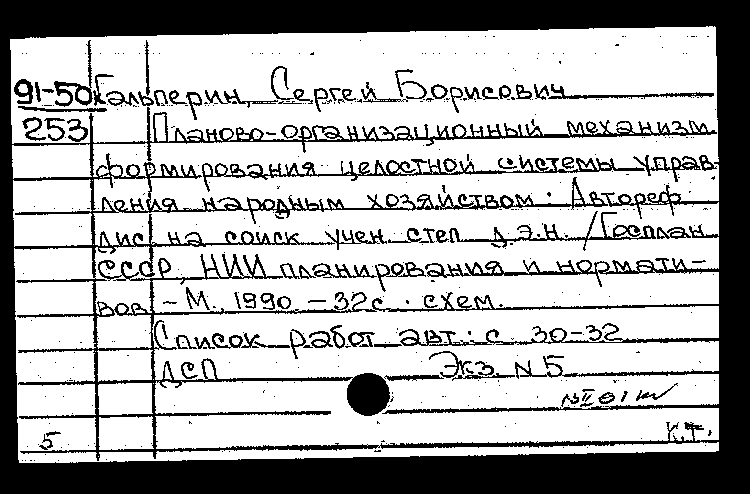 91-50х Гальперин, Сергей Борисович
253 Планово-организационный механизм
формирования целостной системы управ-
ления народным хозяйством: Автореф
дис на соиск учен степ д.э.н. /Госплан
СССР, НИИ планирования и нормати-
вов. - М., 1990 - 32с. схем.
Список работ авт.: с. 30-32
ДСП Экз. N 5
5 К.Т.